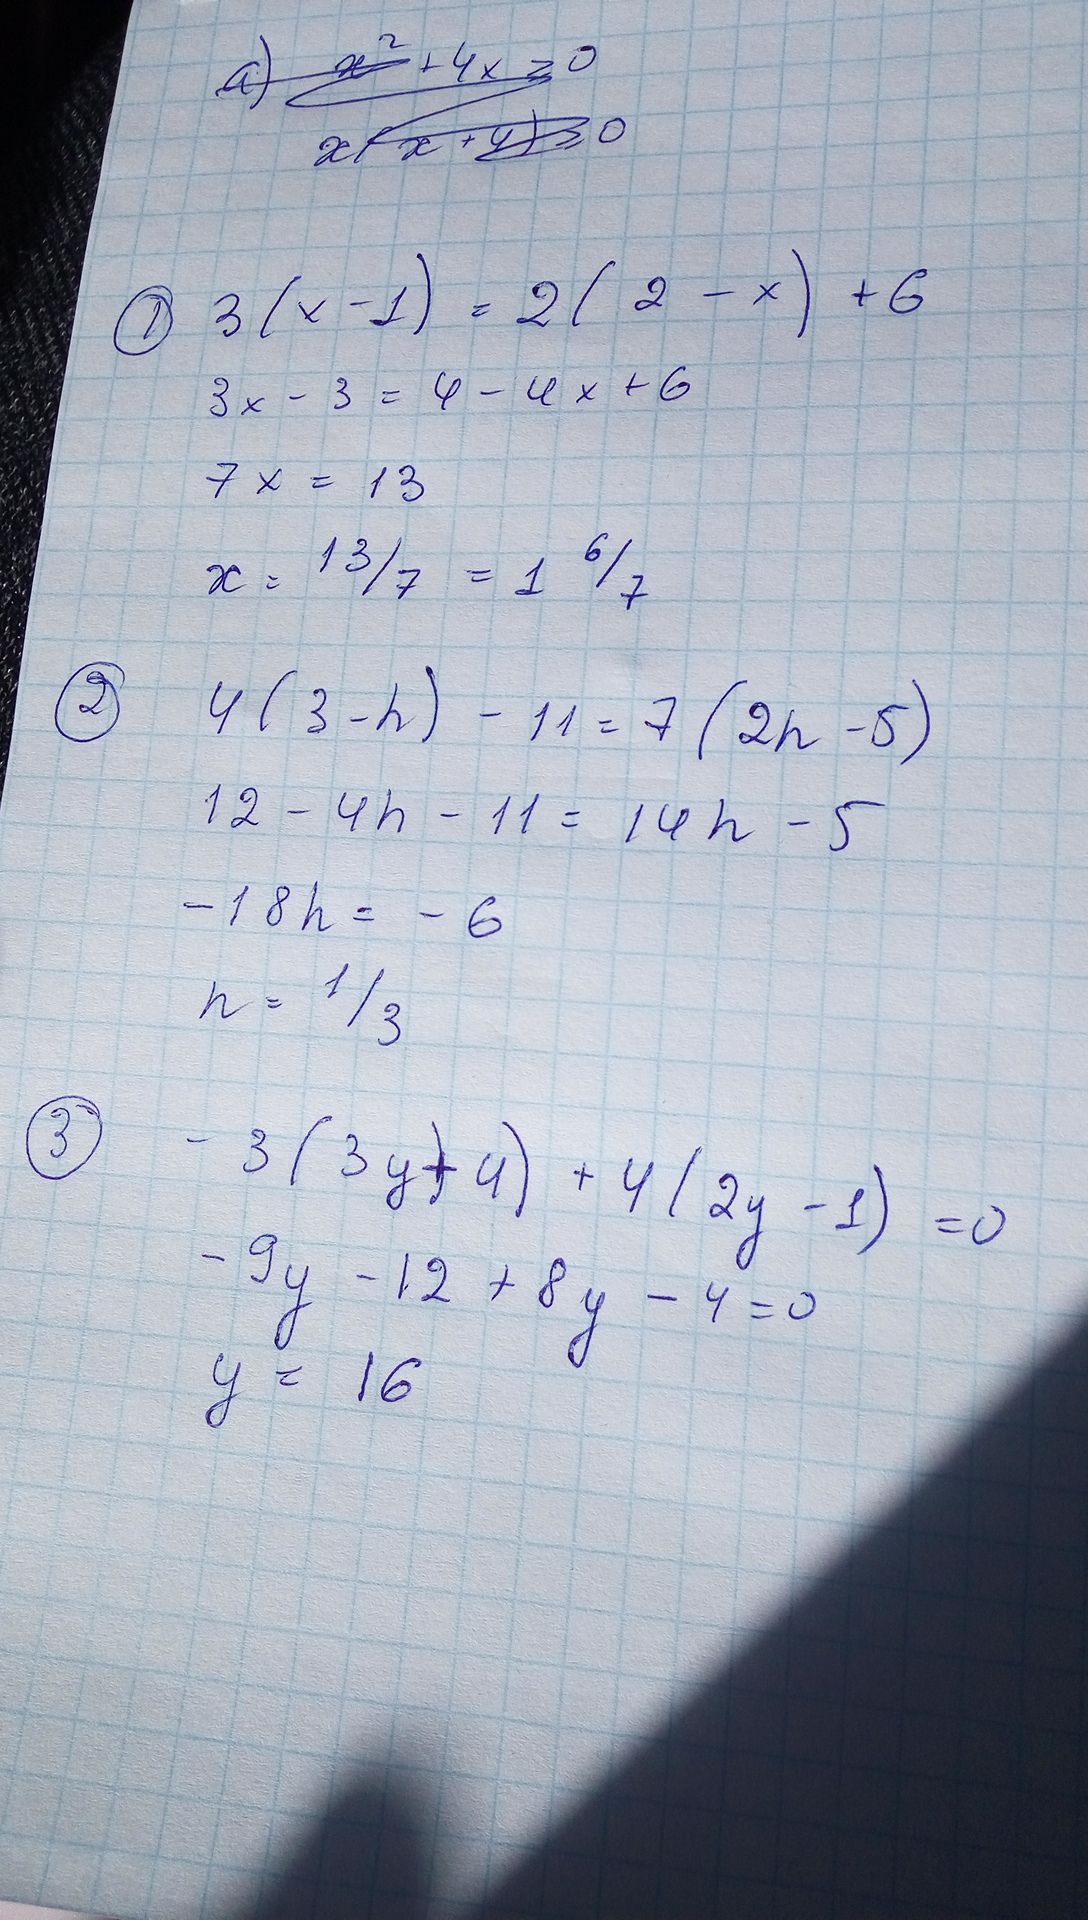 a) x² + 4x = 0
x(x + 4) = 0
① 3(x - 1) = 2(2 - x) + 6
3x - 3 = 4 - 4x + 6
7x = 13
x = 13/7 = 1 6/7
② 4(3 - h) - 11 = 7(2h - 5)
12 - 4h - 11 = 14h - 5
-18h = -6
h = 1/3
③ -3(3y + 4) + 4(2y - 1) = 0
-9y - 12 + 8y - 4 = 0
y = 16